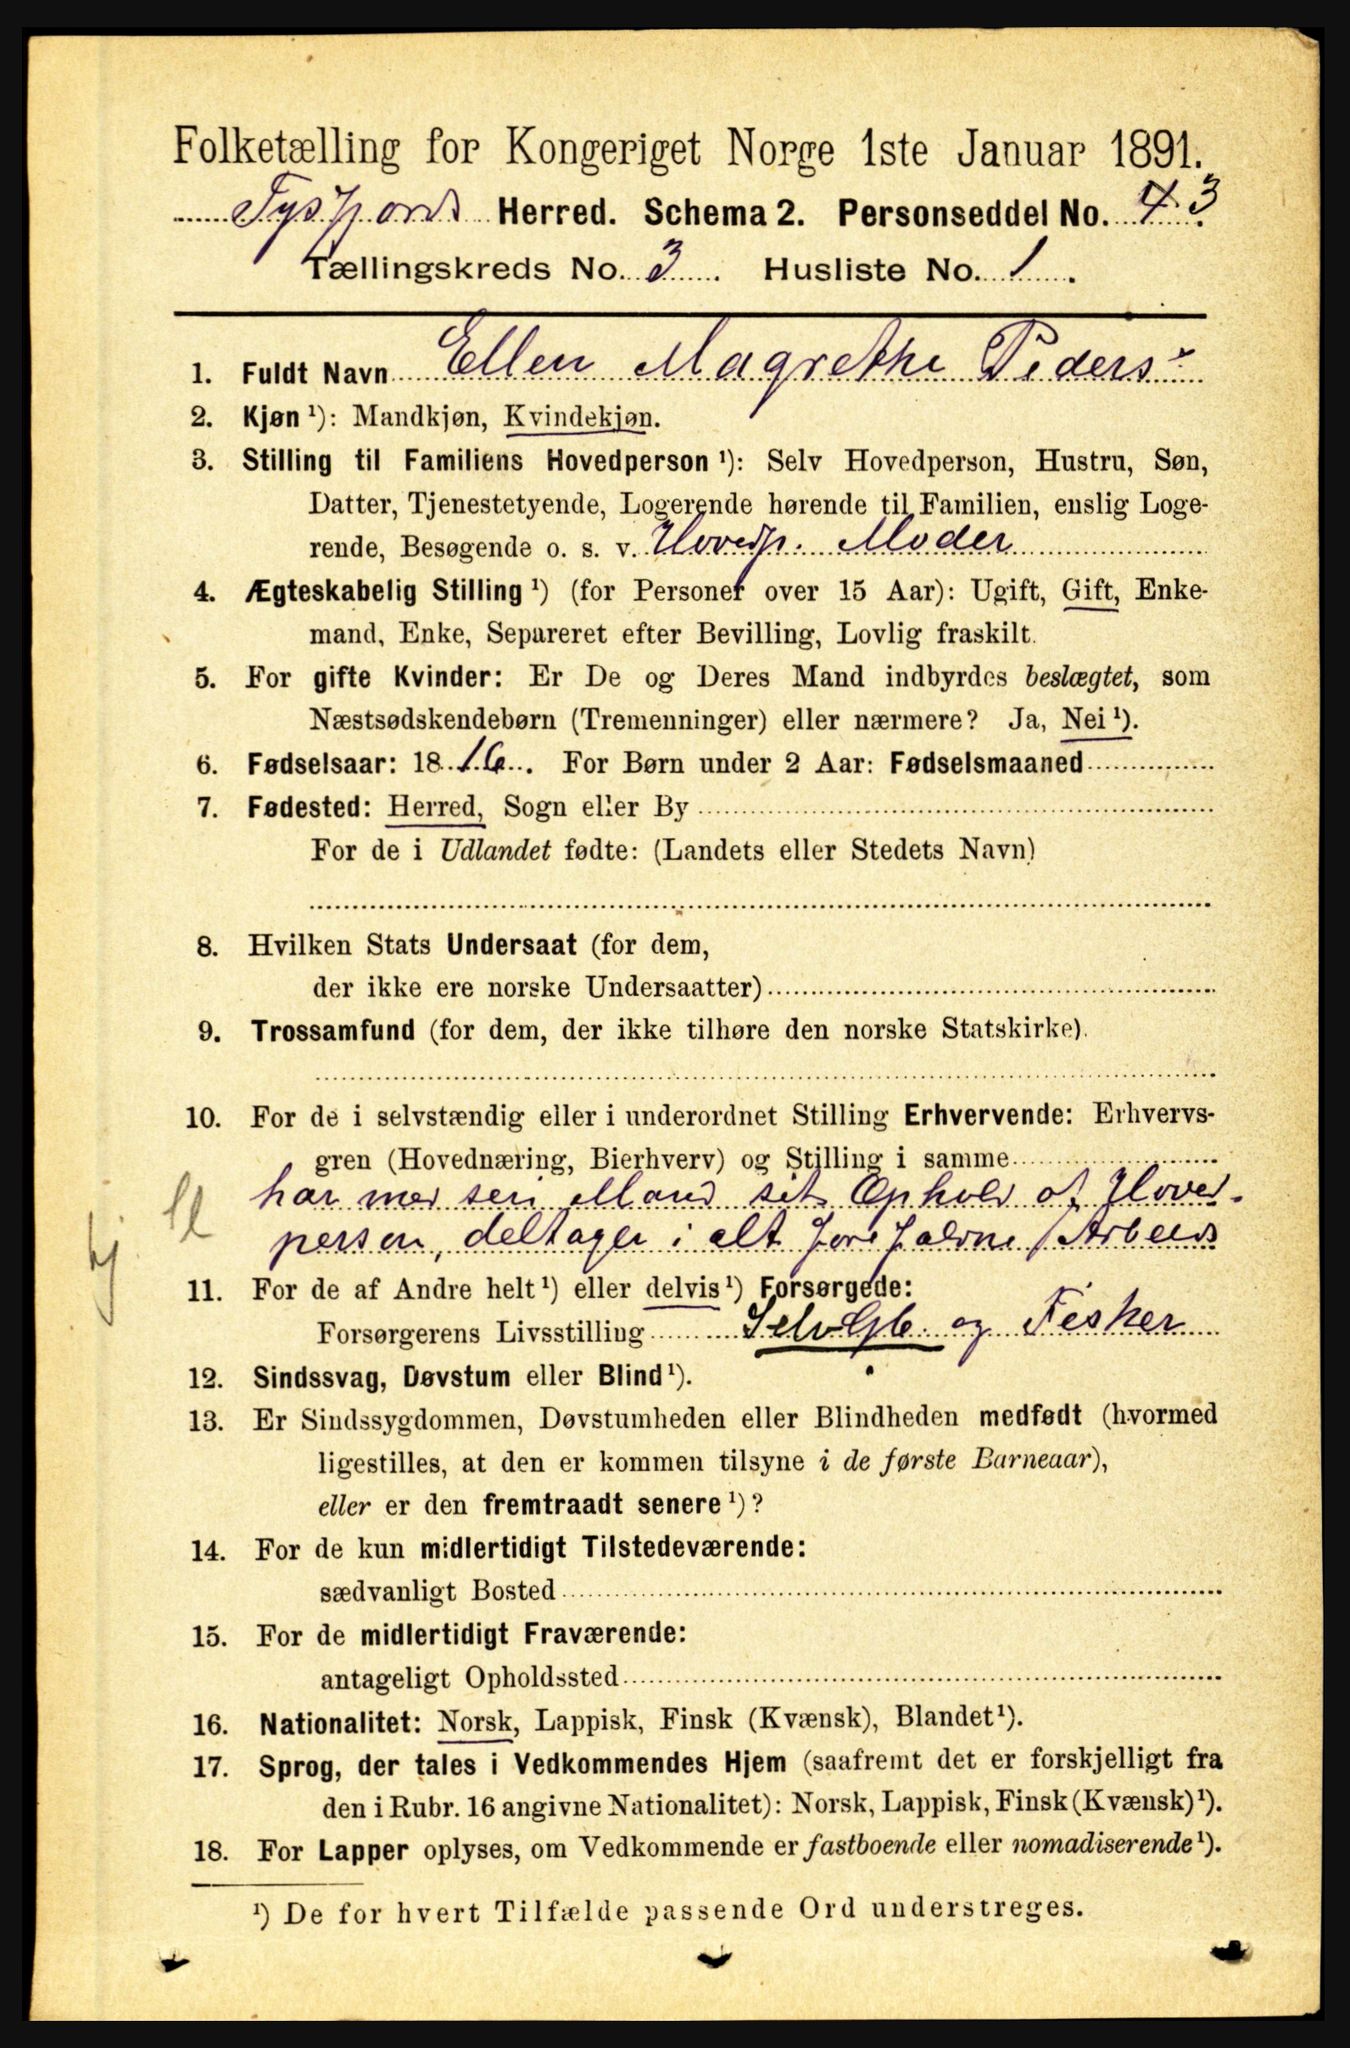 Folketælling for Kongeriget Norge 1ste Januar 1891.
Tysfjord Herred. Schema 2. Personseddel No. 43.
Tællingskreds No. 3. Husliste No. 1.
1. Fuldt Navn Ellen Magrethe Peders
2. Kjøn ¹): Mandkjøn, Kvindekjøn.
3. Stilling til Familiens Hovedperson ¹): Selv Hovedperson, Hustru, Søn,
Datter, Tjenestetyende, Logerende hørende til Familien, enslig Loge-
rende, Besøgende o. s. v. Hovedp. Moder
4. Ægteskabelig Stilling ¹) (for Personer over 15 Aar): Ugift, Gift, Enke-
mand, Enke, Separeret efter Bevilling, Lovlig fraskilt.
5. For gifte Kvinder: Er De og Deres Mand indbyrdes beslægtet, som
Næstsødskendebørn (Tremenninger) eller nærmere? Ja, Nei ¹).
6. Fødselsaar: 1816. For Børn under 2 Aar: Fødselsmaaned
7. Fødested: Herred, Sogn eller By
For de i Udlandet fødte: (Landets eller Stedets Navn)
8. Hvilken Stats Undersaat (for dem,
der ikke ere norske Undersaatter)
9. Trossamfund (for dem, der ikke tilhøre den norske Statskirke).
10. For de i selvstændig eller i underordnet Stilling Erhvervende: Erhvervs-
gren (Hovednæring, Bierhverv) og Stilling i samme
har med sen Mand sit Ophold af Hoved-
person, deltager i alt forefaldne Arbeids
11. For de af Andre helt ¹) eller delvis ¹) Forsørgede:
Forsørgerens Livsstilling Selv Gb. og Fisker
12. Sindssvag, Døvstum eller Blind ¹).
13. Er Sindssygdommen, Døvstumheden eller Blindheden medfødt (hvormed
ligestilles, at den er kommen tilsyne i de første Barneaar),
eller er den fremtraadt senere ¹)?
14. For de kun midlertidigt Tilstedeværende:
sædvanligt Bosted
15. For de midlertidigt Fraværende:
antageligt Opholdssted
16. Nationalitet: Norsk, Lappisk, Finsk (Kvænsk), Blandet ¹).
17. Sprog, der tales i Vedkommendes Hjem (saafremt det er forskjelligt fra
den i Rubr. 16 angivne Nationalitet): Norsk, Lappisk, Finsk (Kvænsk) ¹).
18. For Lapper oplyses, om Vedkommende er fastboende eller nomadiserende ¹).
¹) De for hvert Tilfælde passende Ord understreges.